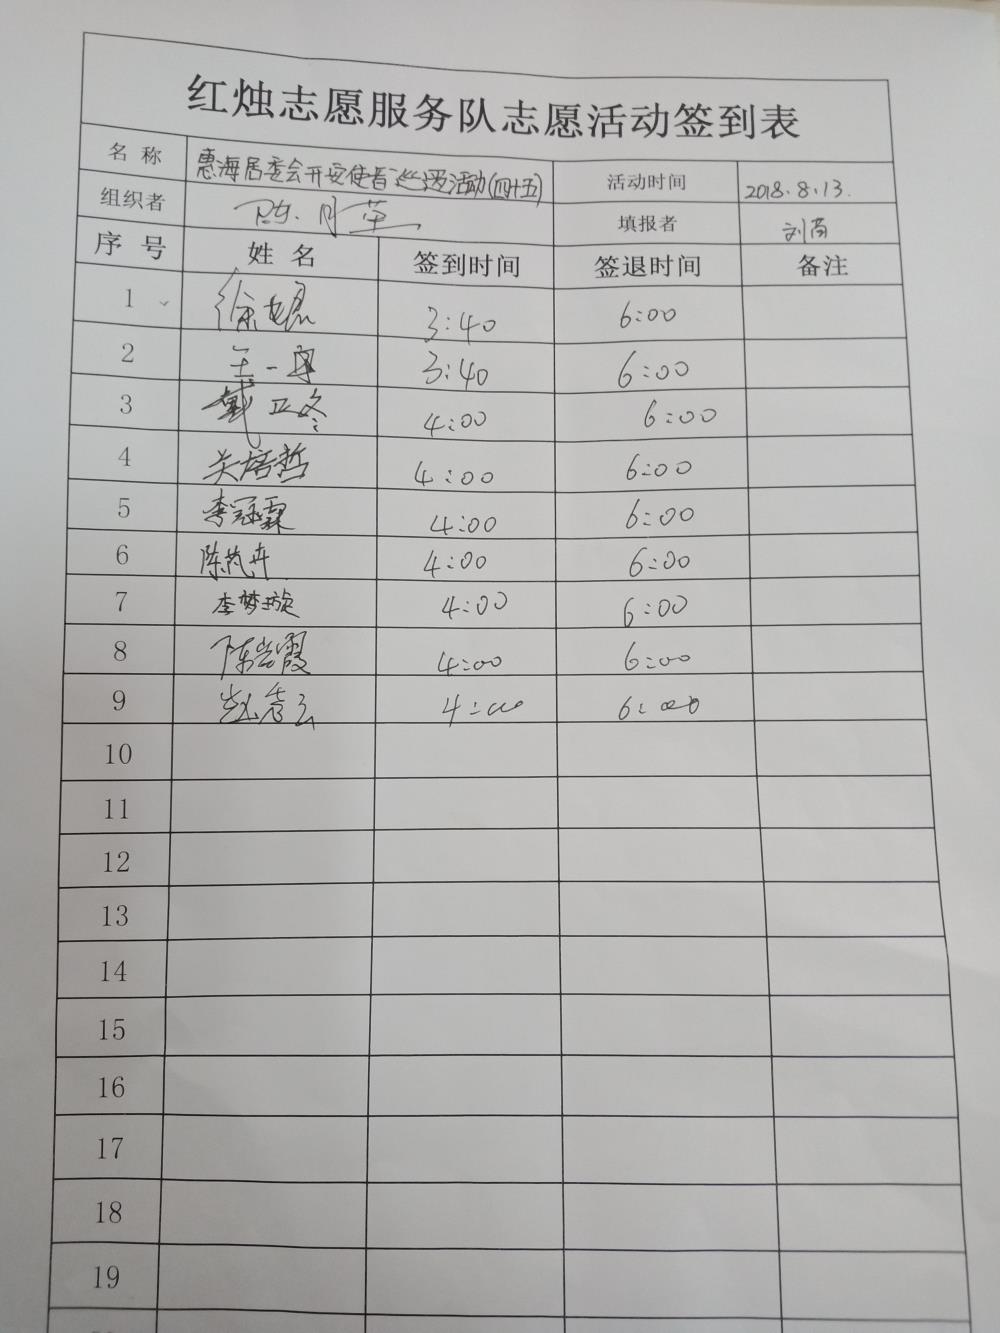 红烛志愿服务队志愿活动签到表
名 称 惠海居委会平安使者巡逻活动(四十五) 活动时间 2018.8.13.
组织者 陈 填报者 刘
序 号 姓 名 签到时间 签退时间 备注
1 徐 3:40 6:00
2 王一 3:40 6:00
3 戴卫冬 4:00 6:00
4 关培哲 4:00 6:00
5 李冠霖 4:00 6:00
6 陈芃卉 4:00 6:00
7 李梦璇 4:00 6:00
8 陈岩霞 4:00 6:00
9 4:00 6:00
10
11
12
13
14
15
16
17
18
19